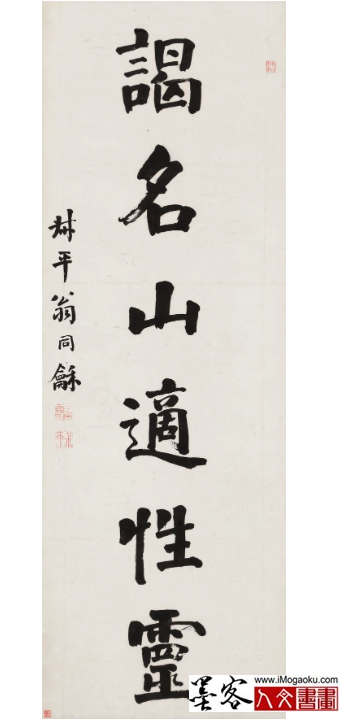 謁名山適性靈
叔平翁同龢
www.iMogaoku.com
墨客人文書畫